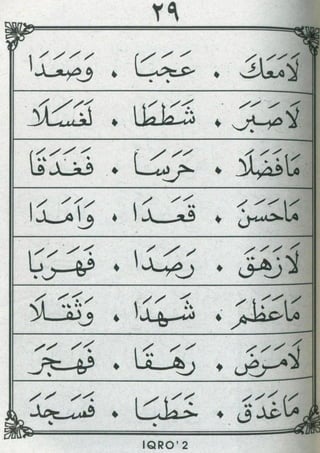 ٢٩
لَامَعَكَ • عَجَبَا • وَصَعَدَا
لَاصَبَرَ • شَطَطَا • لَغَسَلَا
مَافَضَلَا • حَرَسَا • فَغَدَقَا
مَاحَسَنَ • قَعَدَا • وَاَمَدَا
لَازَهَقَ • رَصَدَا • فَهَرَبَا
مَاعَظَمَ • شَهَدَا • وَثَقَلَا
لَامَرَضَ • رَهَقَا • فَهَجَرَ
مَاغَدَقَ • خَطَبَا • فَسَجَدَ
IQRO' 2